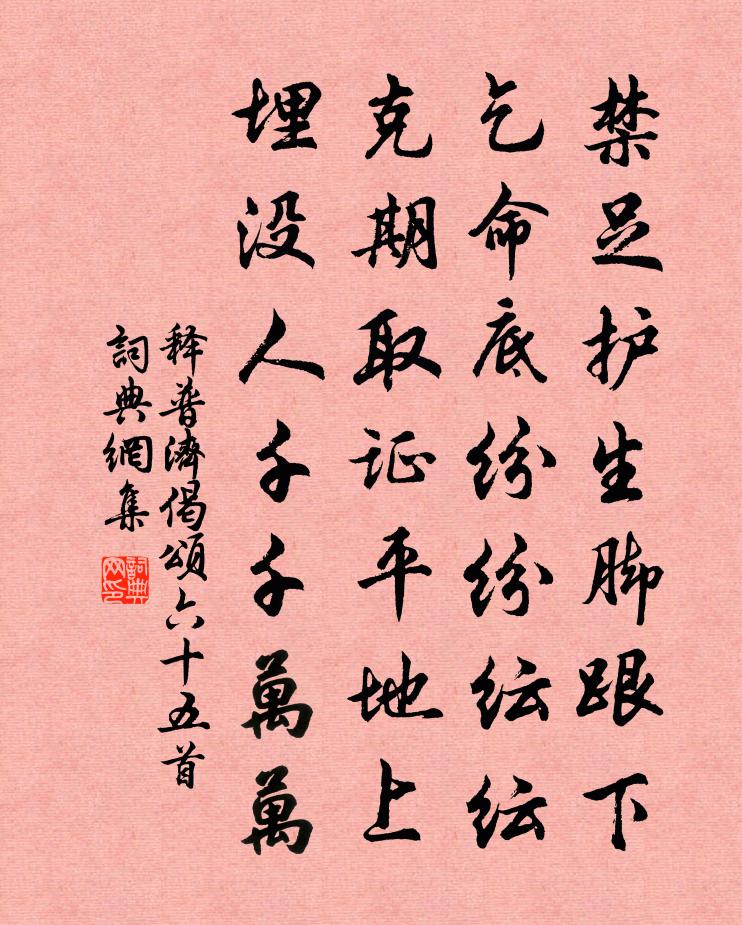 禁足护生脚跟下
乞命底纷纷纭纭
克期取证平地上
埋没人千千萬萬
释普濟偈頌六十五首
詞典網集
詞典
网印